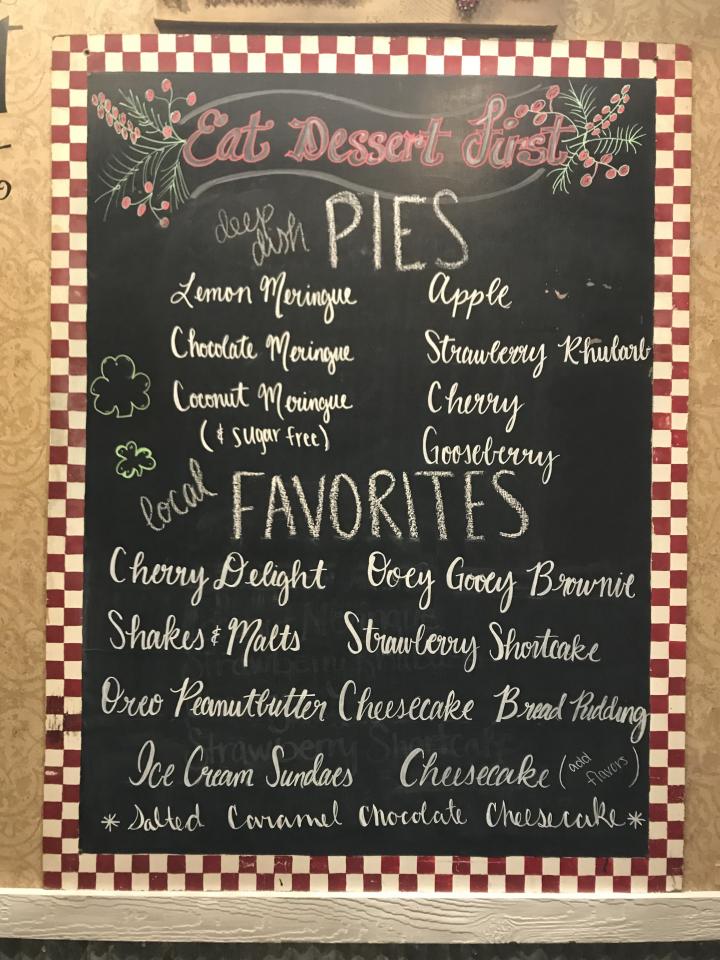 Eat Dessert First
deep dish PIES
Lemon Meringue Apple
Chocolate Meringue Strawberry Rhubarb
Coconut Meringue Cherry
(& sugar free) Gooseberry
local FAVORITES
Cherry Delight Ooey Gooey Brownie
Shakes & Malts Strawberry Shortcake
Oreo Peanutbutter Cheesecake Bread Pudding
Ice Cream Sundaes Cheesecake (add flavors)
* Salted Caramel Chocolate Cheesecake *